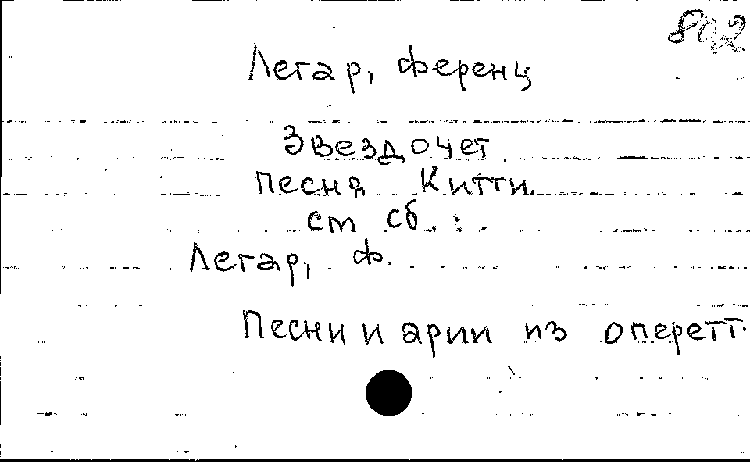 Легар, Ференц
Звездочет
Песня Китти.
см сб.:
Легар, Ф.
Песни и арии из оперетт.